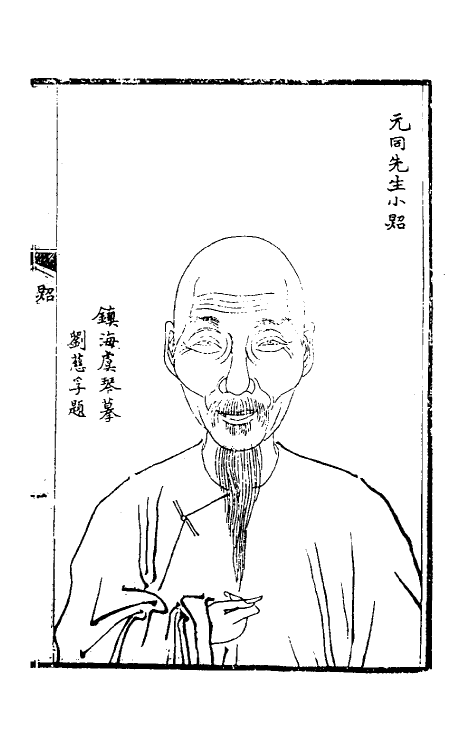 元同先生小照
鎮海虞琴摹
劉慈孚題
照
一